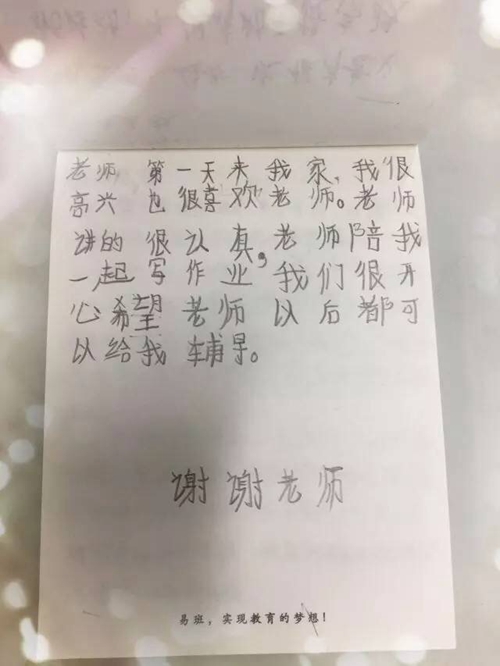 老师 第一天来我家,我很
高兴 也很喜欢老师。老师
讲的很认真,老师陪我
一起写作业,我们很开
心希望老师以后都可
以给我辅导。
谢谢老师
易班,实现教育的梦想!